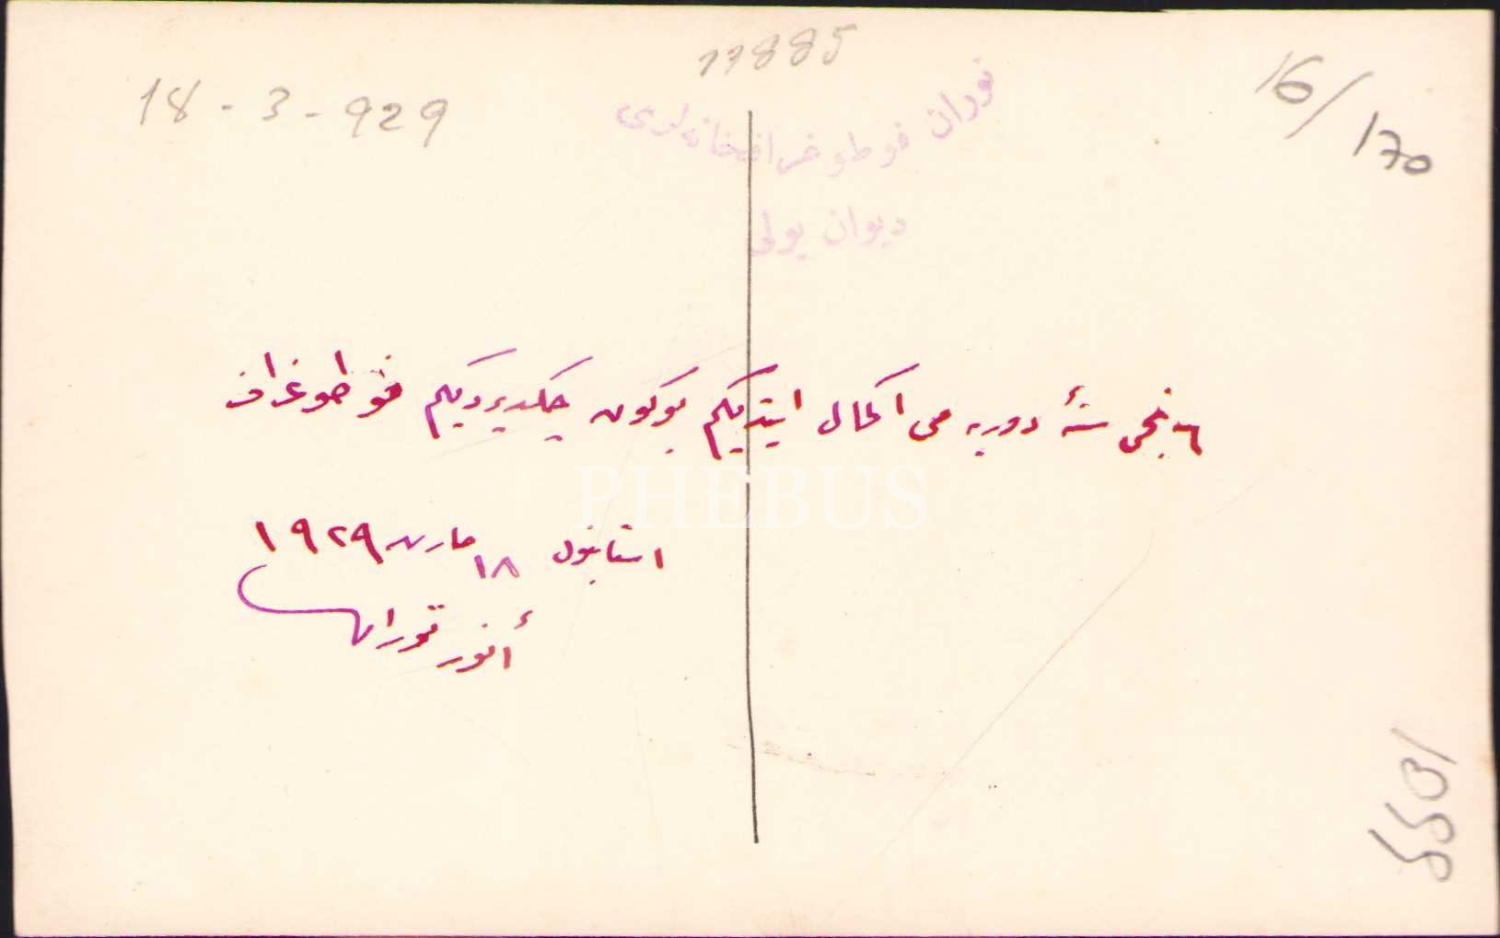 11885
18-3-929
16/170
توران فوطوغرافخانه لری
دیوان یولی
٦ نجی سنهٔ دوریه می اکمال ایتدیکم بوکون چکدیردیکم فوطوغراف
PHEBUS
استانبول ١٨ مارت ١٩٢٩
أنور توران